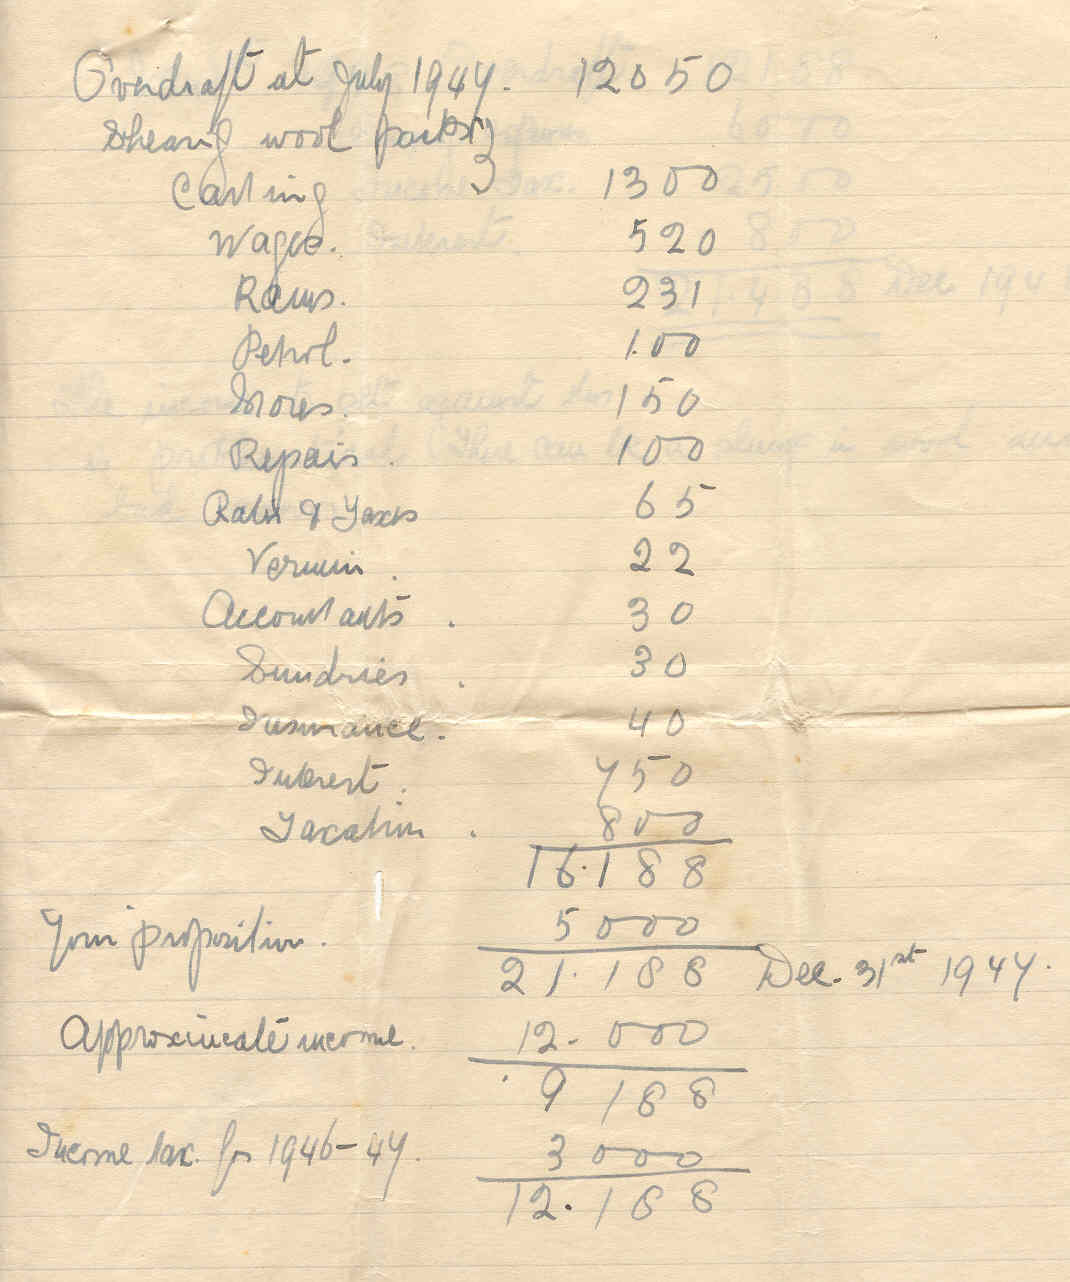 Overdraft at July 1947. 12050
Shearing wool packs }
Carting 1300
Wages. 520
Rams. 231
Petrol. 100
Stores. 150
Repairs. 100
Rates & Taxes 65
Vermin. 22
Accountants. 30
Sundries. 30
Insurance. 40
Interest. 750
Taxation. 800
16.188
Your proposition. 5000
21.188 Dec. 31st 1947.
Approximate income. 12.000
9188
Income tax. for 1946-47. 3000
12.188